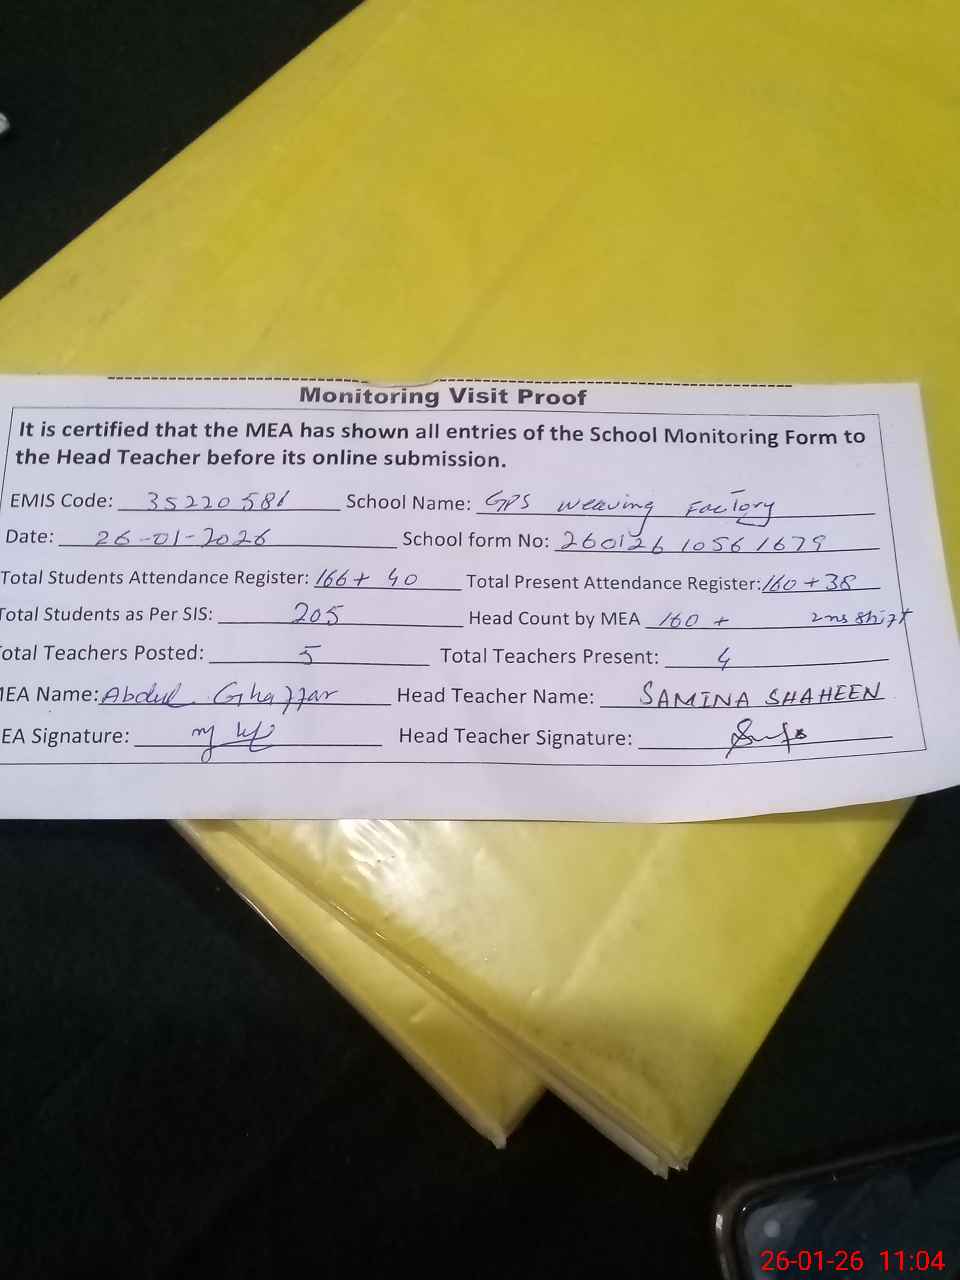 Monitoring Visit Proof
It is certified that the MEA has shown all entries of the School Monitoring Form to
the Head Teacher before its online submission.
EMIS Code: 35220581 School Name: GPS weaving Factory
Date: 26-01-2026 School form No: 26012610561679
Total Students Attendance Register: 166+ 40 Total Present Attendance Register: 160+38
Total Students as Per SIS: 205 Head Count by MEA 160 + 2ns shift
otal Teachers Posted: 5 Total Teachers Present: 4
MEA Name: Abdul Ghaffar Head Teacher Name: SAMINA SHAHEEN
EA Signature: Head Teacher Signature:
26-01-26 11:04